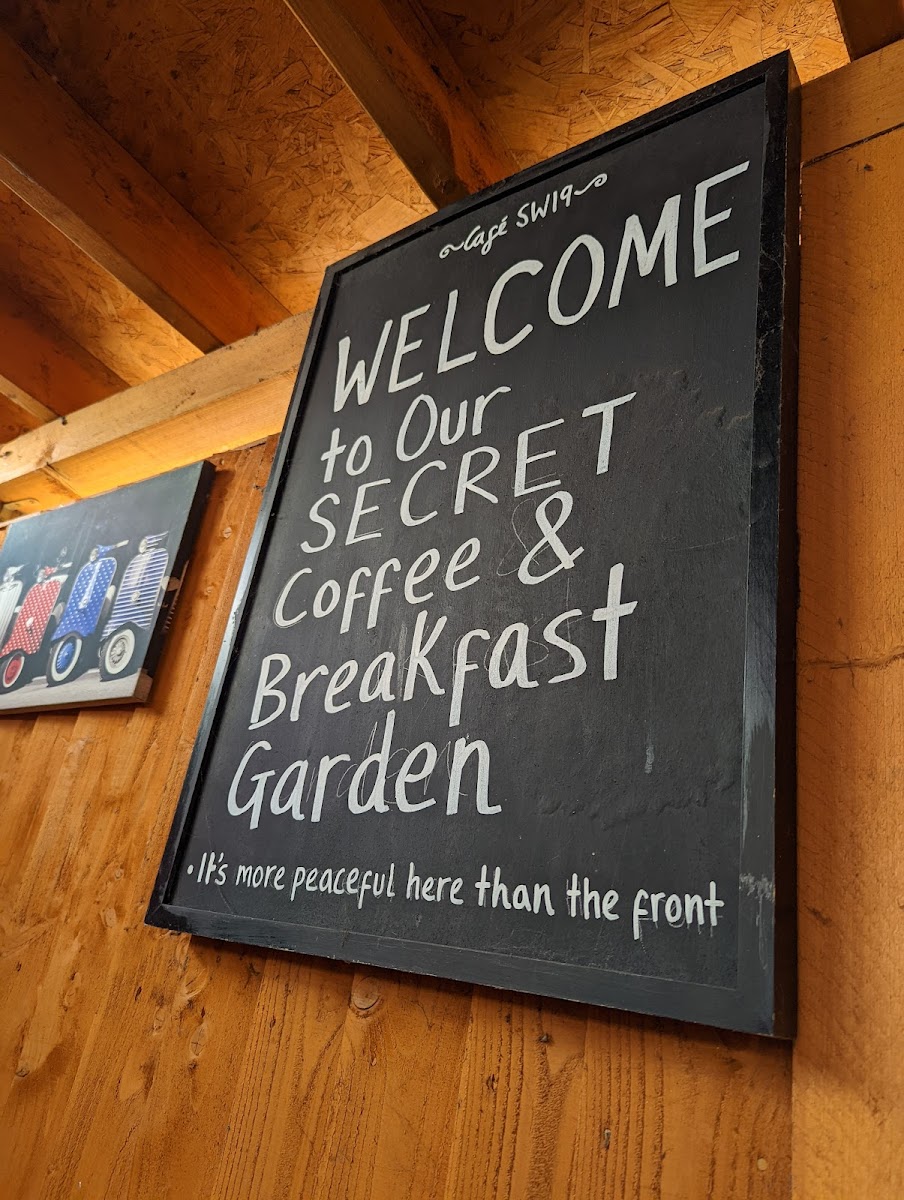 Café SW19
WELCOME
to Our
SECRET
Coffee &
Breakfast
Garden
• It's more peaceful here than the front